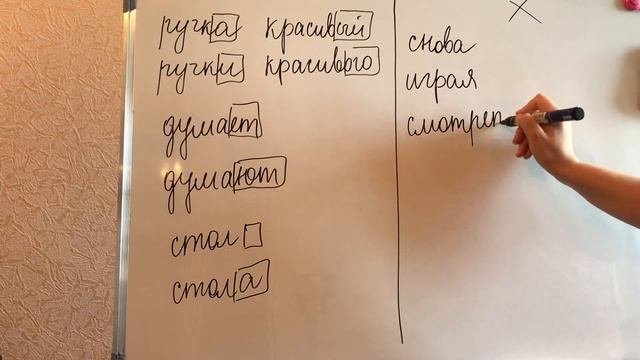 ручка красивый
ручки красивого
думает
думают
стол
стола
X
снова
играя
смотрет